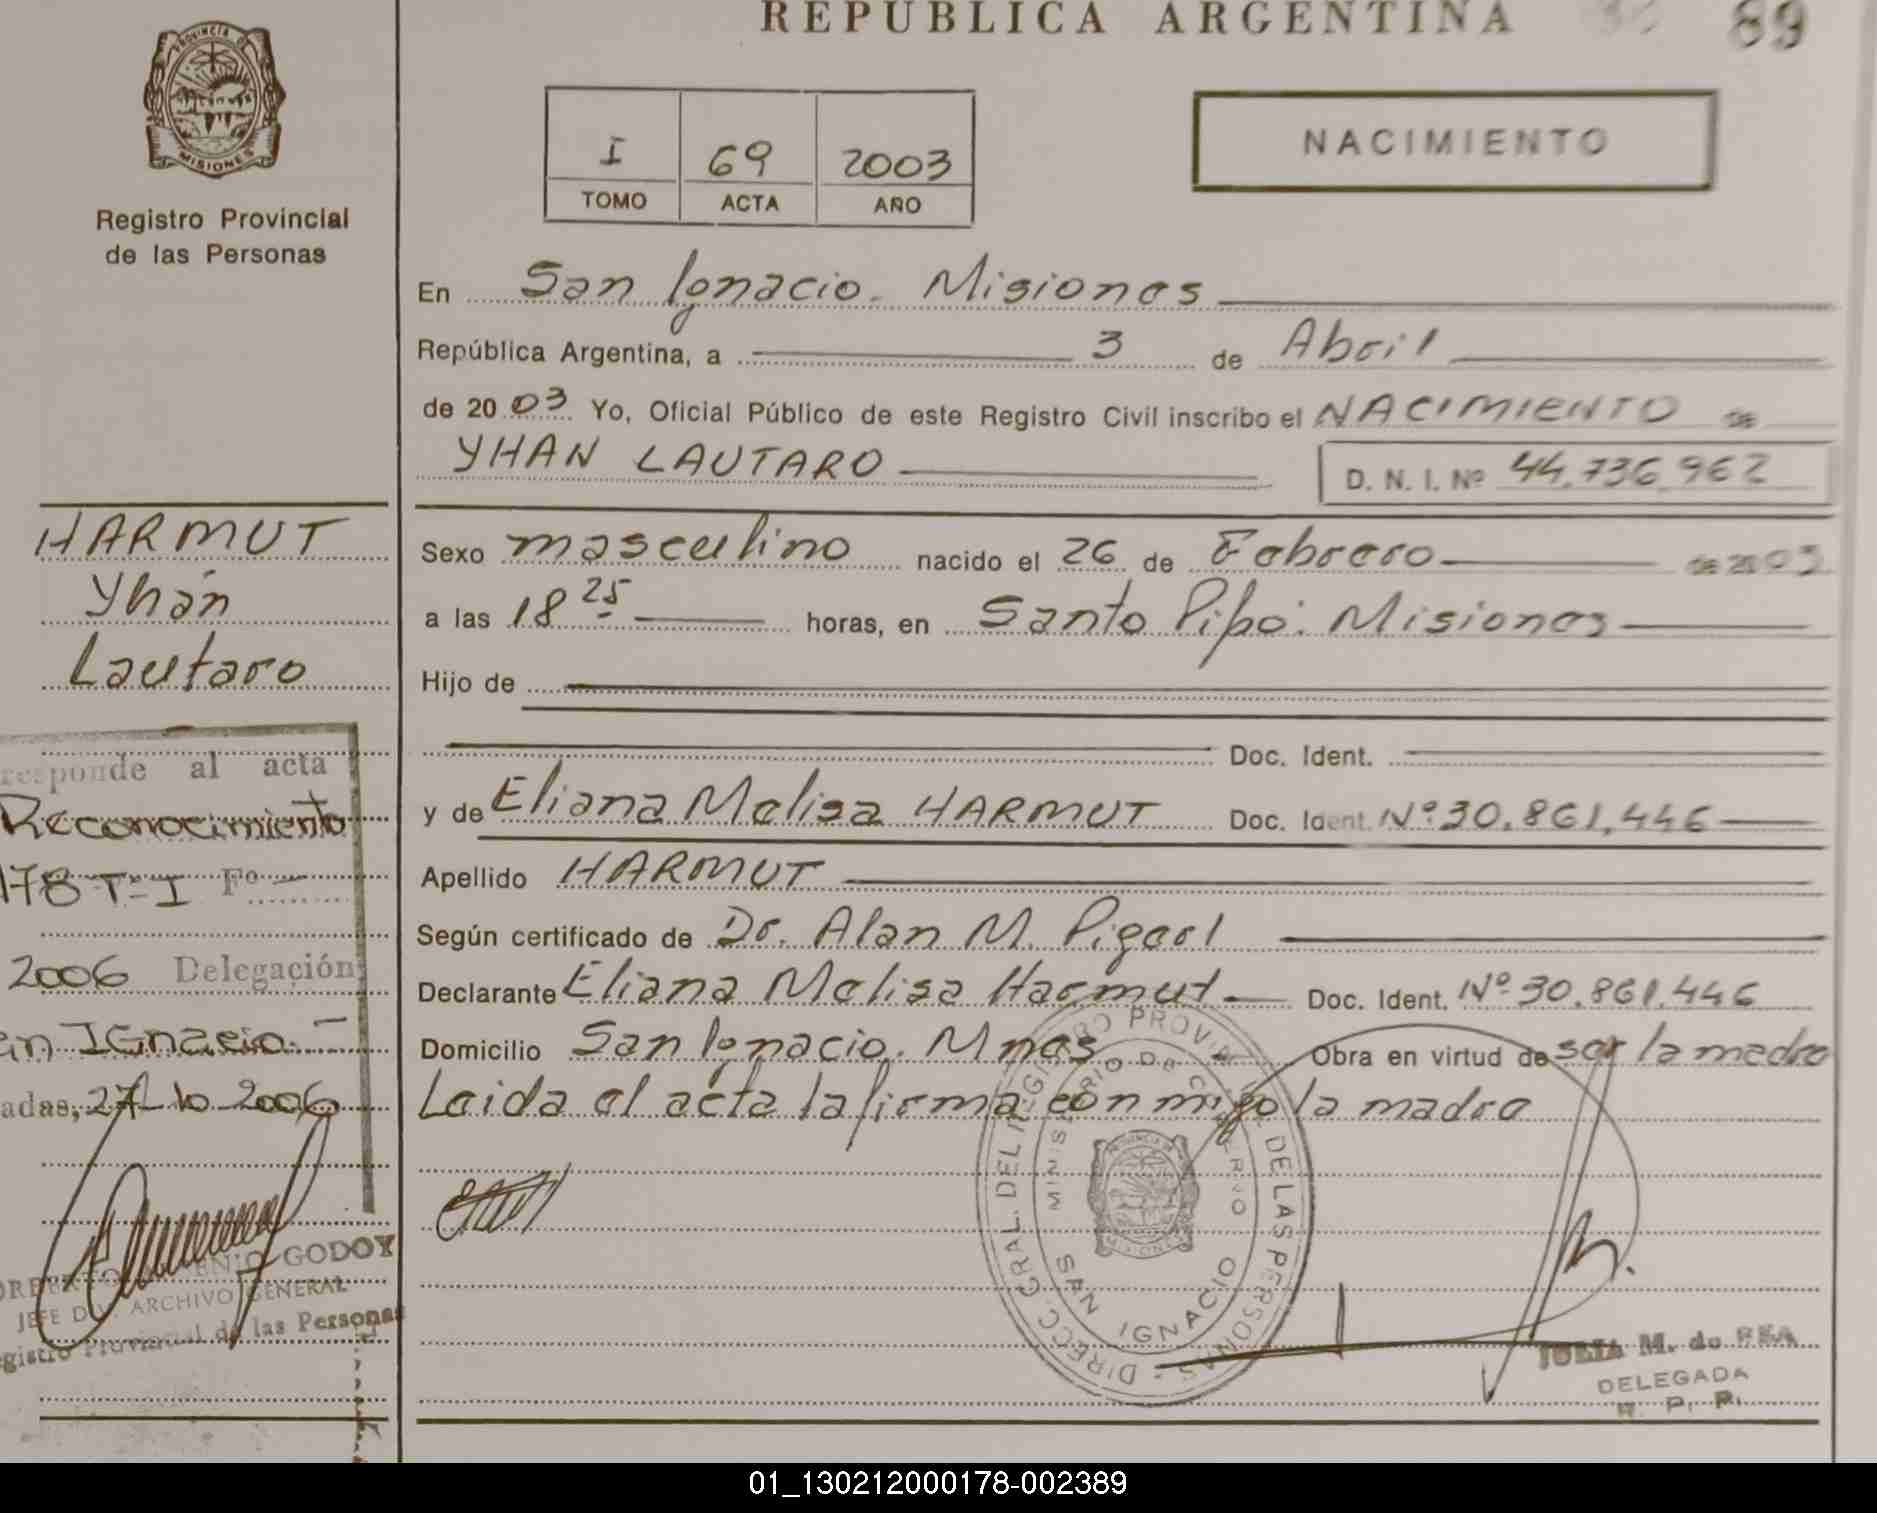 REPUBLICA ARGENTINA
89
PROVINCIA DE
MISIONES
Registro Provincial
de las Personas
I 69 2003
TOMO ACTA AÑO
NACIMIENTO
En San Ignacio. Misiones
República Argentina, a 3 de Abril
de 2003 Yo, Oficial Público de este Registro Civil inscribo el NACIMIENTO DE
YHAN LAUTARO
D. N. I. Nº 44.736.962
HARMUT
Yhan
Lautaro
Sexo masculino nacido el 26 de Febrero de 2003
a las 18 25 horas, en Santo Pipó. Misiones
Hijo de
Doc. Ident.
y de Eliana Melisa HARMUT Doc. Ident. Nº 30.861.446
Apellido HARMUT
Según certificado de Dr. Alan M.
Declarante Eliana Melisa Harmut Doc. Ident. Nº 30.861.446
Domicilio San Ignacio. Mnes Obra en virtud de ser la madre
Leida el acta la firma conmigo la madre
responde al acta
Reconocimiento
178 T=I Fº
2006 Delegación
an IGnacio.
adas, 27 10 2006
GODOY
JEFE DIV. ARCHIVO GENERAL
Provincial de las Personas
DIRECC. GRAL. DEL REGISTRO PROVINCIAL DE LAS PERSONAS
MINISTERIO DE GOBIERNO
PROVINCIA DE
MISIONES
SAN IGNACIO
JULIA M. de REA
DELEGADA
R. P. P.
01_130212000178-002389